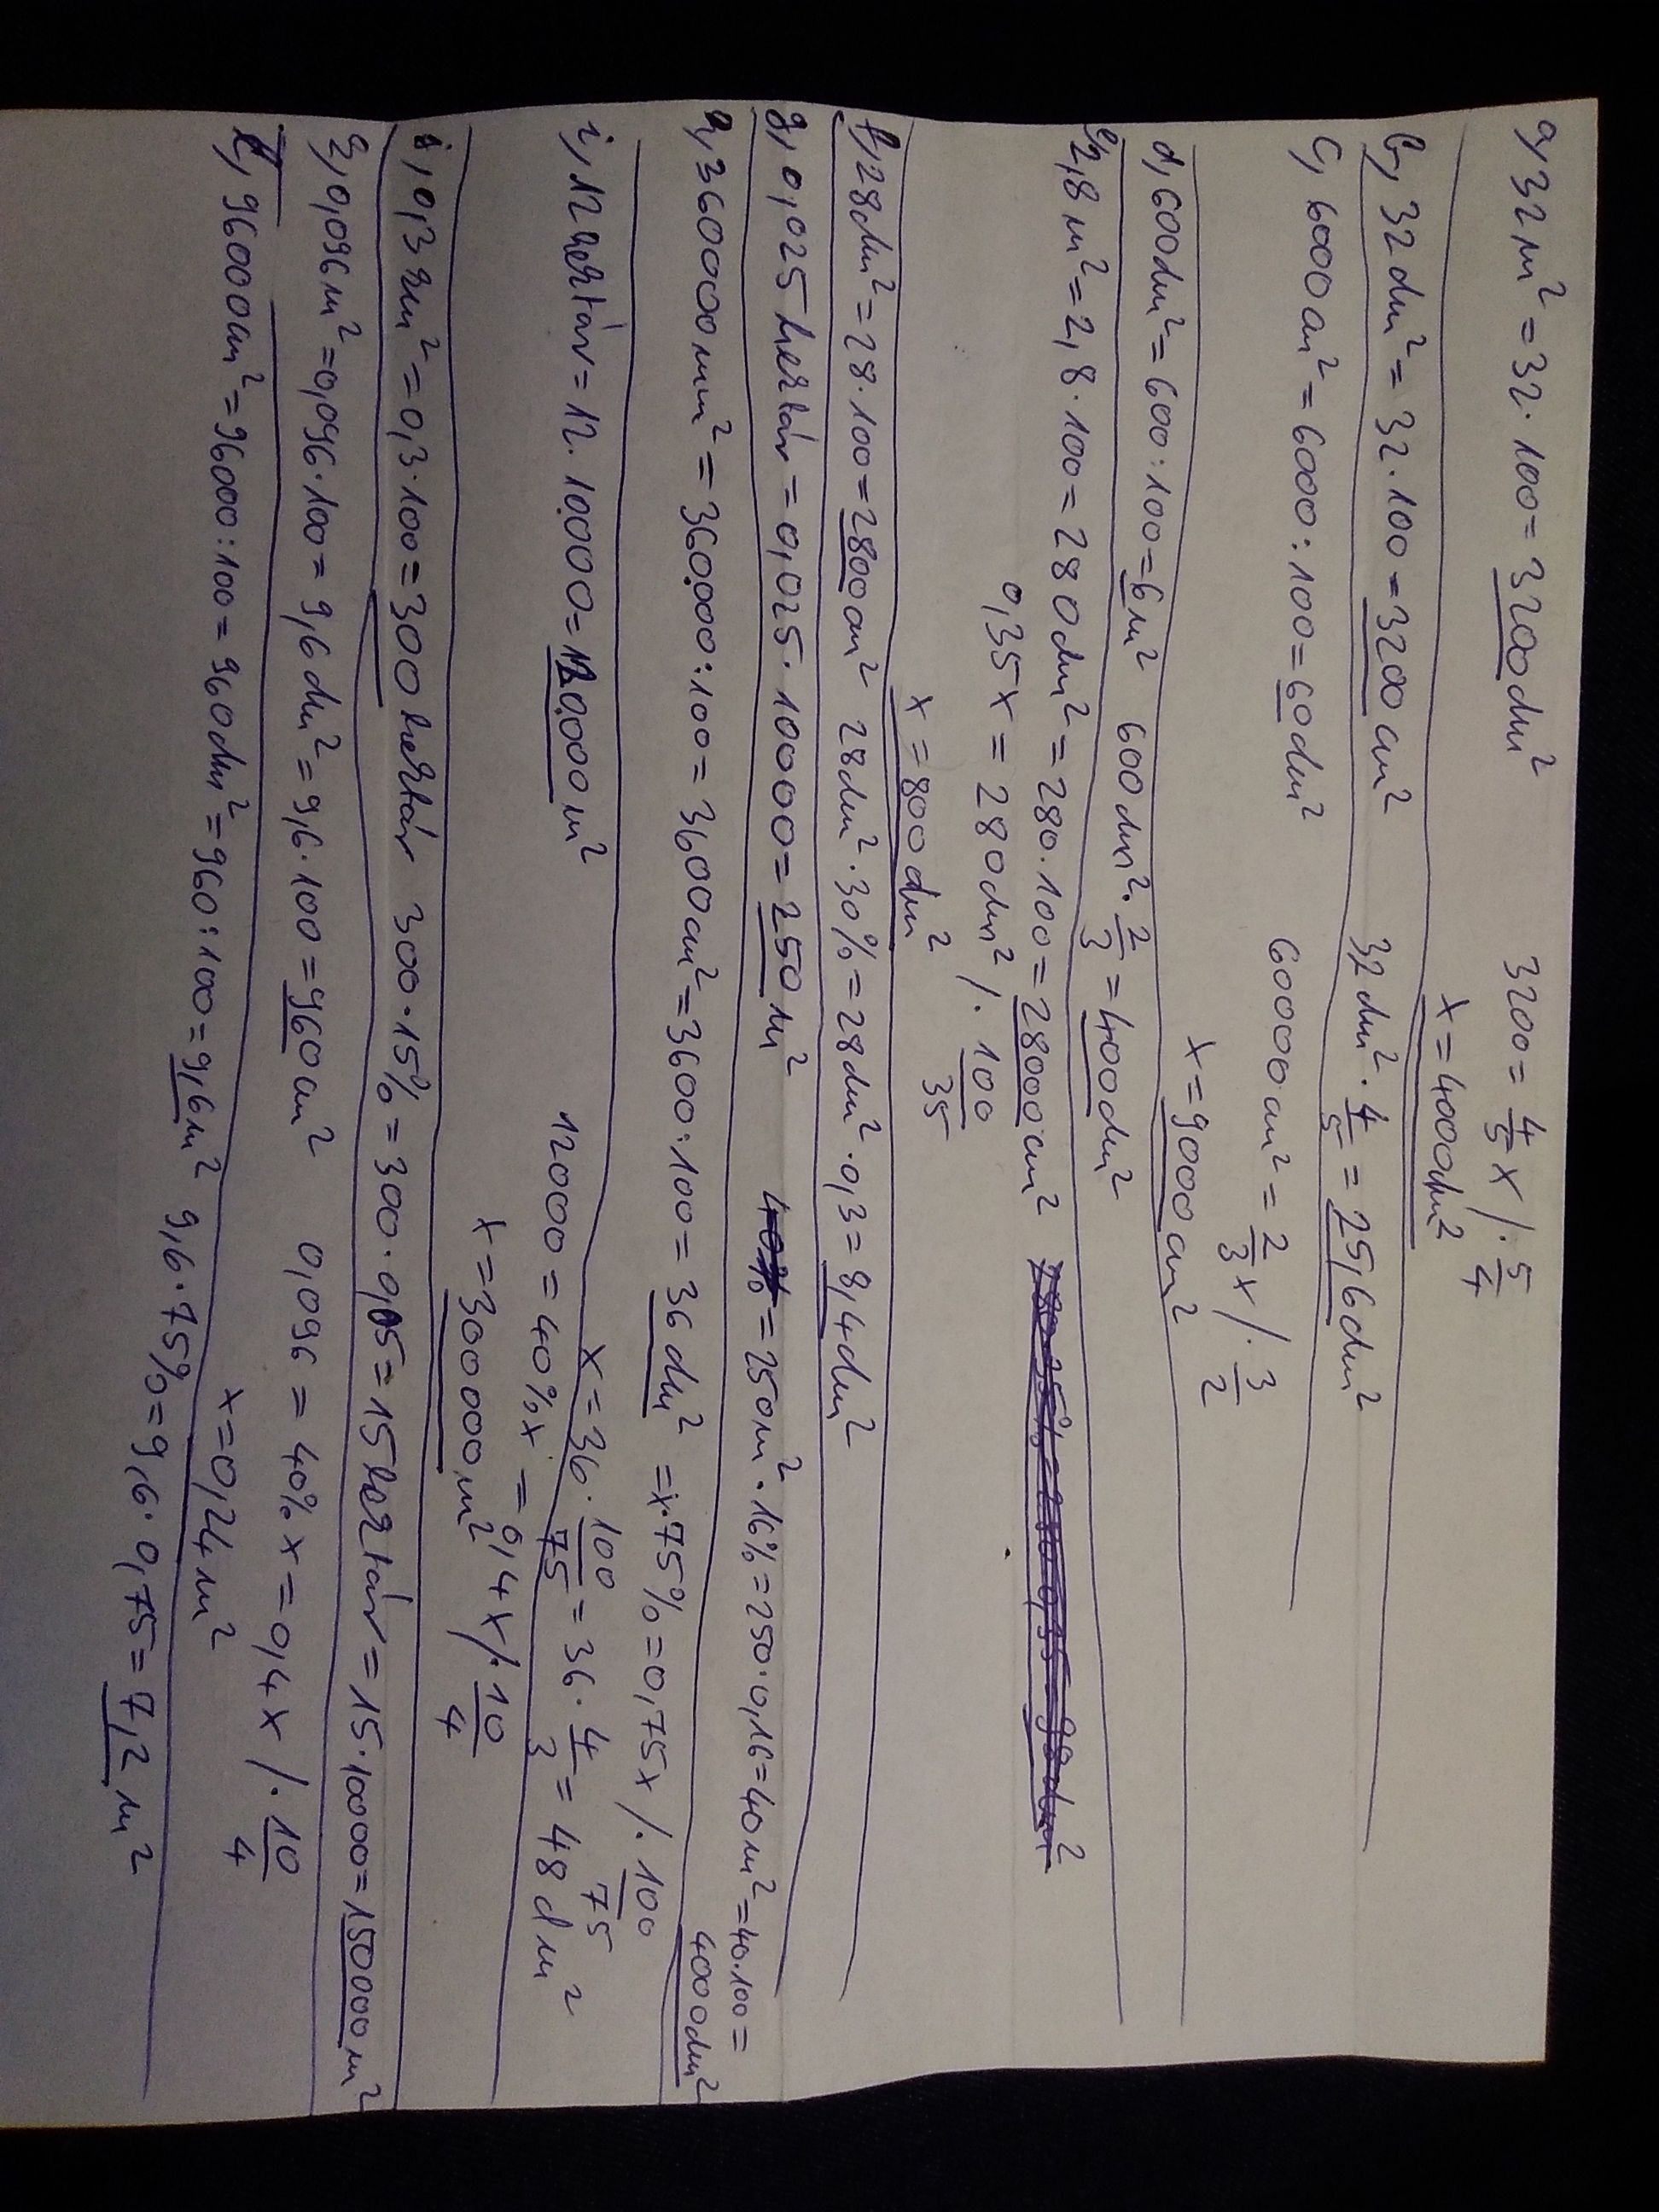 a, 32m² = 32 · 100 = 3200dm² 3200 = 4/5 x /· 5/4
x = 4000dm²
b, 32dm² = 32 · 100 = 3200cm² 32dm² · 4/5 = 25,6dm²
c, 6000cm² = 6000 : 100 = 60dm² 6000cm² = 2/3 x /· 3/2
x = 9000cm²
d, 600dm² = 600 : 100 = 6m² 600dm² · 2/3 = 400dm²
e, 2,8m² = 2,8 · 100 = 280dm² = 280 · 100 = 28000cm²
0,35x = 280dm² /· 100/35
x = 800dm²
f, 28dm² = 28 · 100 = 2800cm² 28dm² · 30% = 28dm² · 0,3 = 8,4dm²
g, 0,025 hektár = 0,025 · 10000 = 250m² = 250m² · 16% = 250 · 0,16 = 40m² = 40 · 100 =
4000dm²
h, 360000mm² = 360.000 : 100 = 3600cm² = 3600 : 100 = 36dm² = x · 75% = 0,75x /· 100/75
x = 36 · 100/75 = 36 · 4/3 = 48dm²
i, 12 hektár = 12 · 10.000 = 120.000m² 12000 = 40%x = 0,4x /· 10/4
x = 300000m²
j, 0,3km² = 0,3 · 100 = 300 hektár 300 · 15% = 300 · 0,05 = 15 hektár = 15 · 10000 = 15000m²
k, 0,096m² = 0,096 · 100 = 9,6dm² = 9,6 · 100 = 960cm² 0,096 = 40%x = 0,4x /· 10/4
x = 0,24m²
l, 96000cm² = 96000 : 100 = 960dm² = 960 : 100 = 9,6m² 9,6 · 75% = 9,6 · 0,75 = 7,2m²